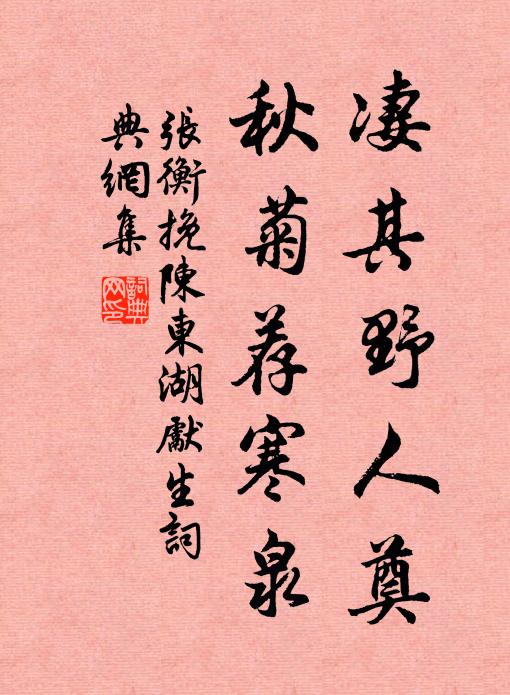 凄其野人奠
秋菊荐寒泉
張衡挽陳東湖獻生詞
典網集
詞典網印